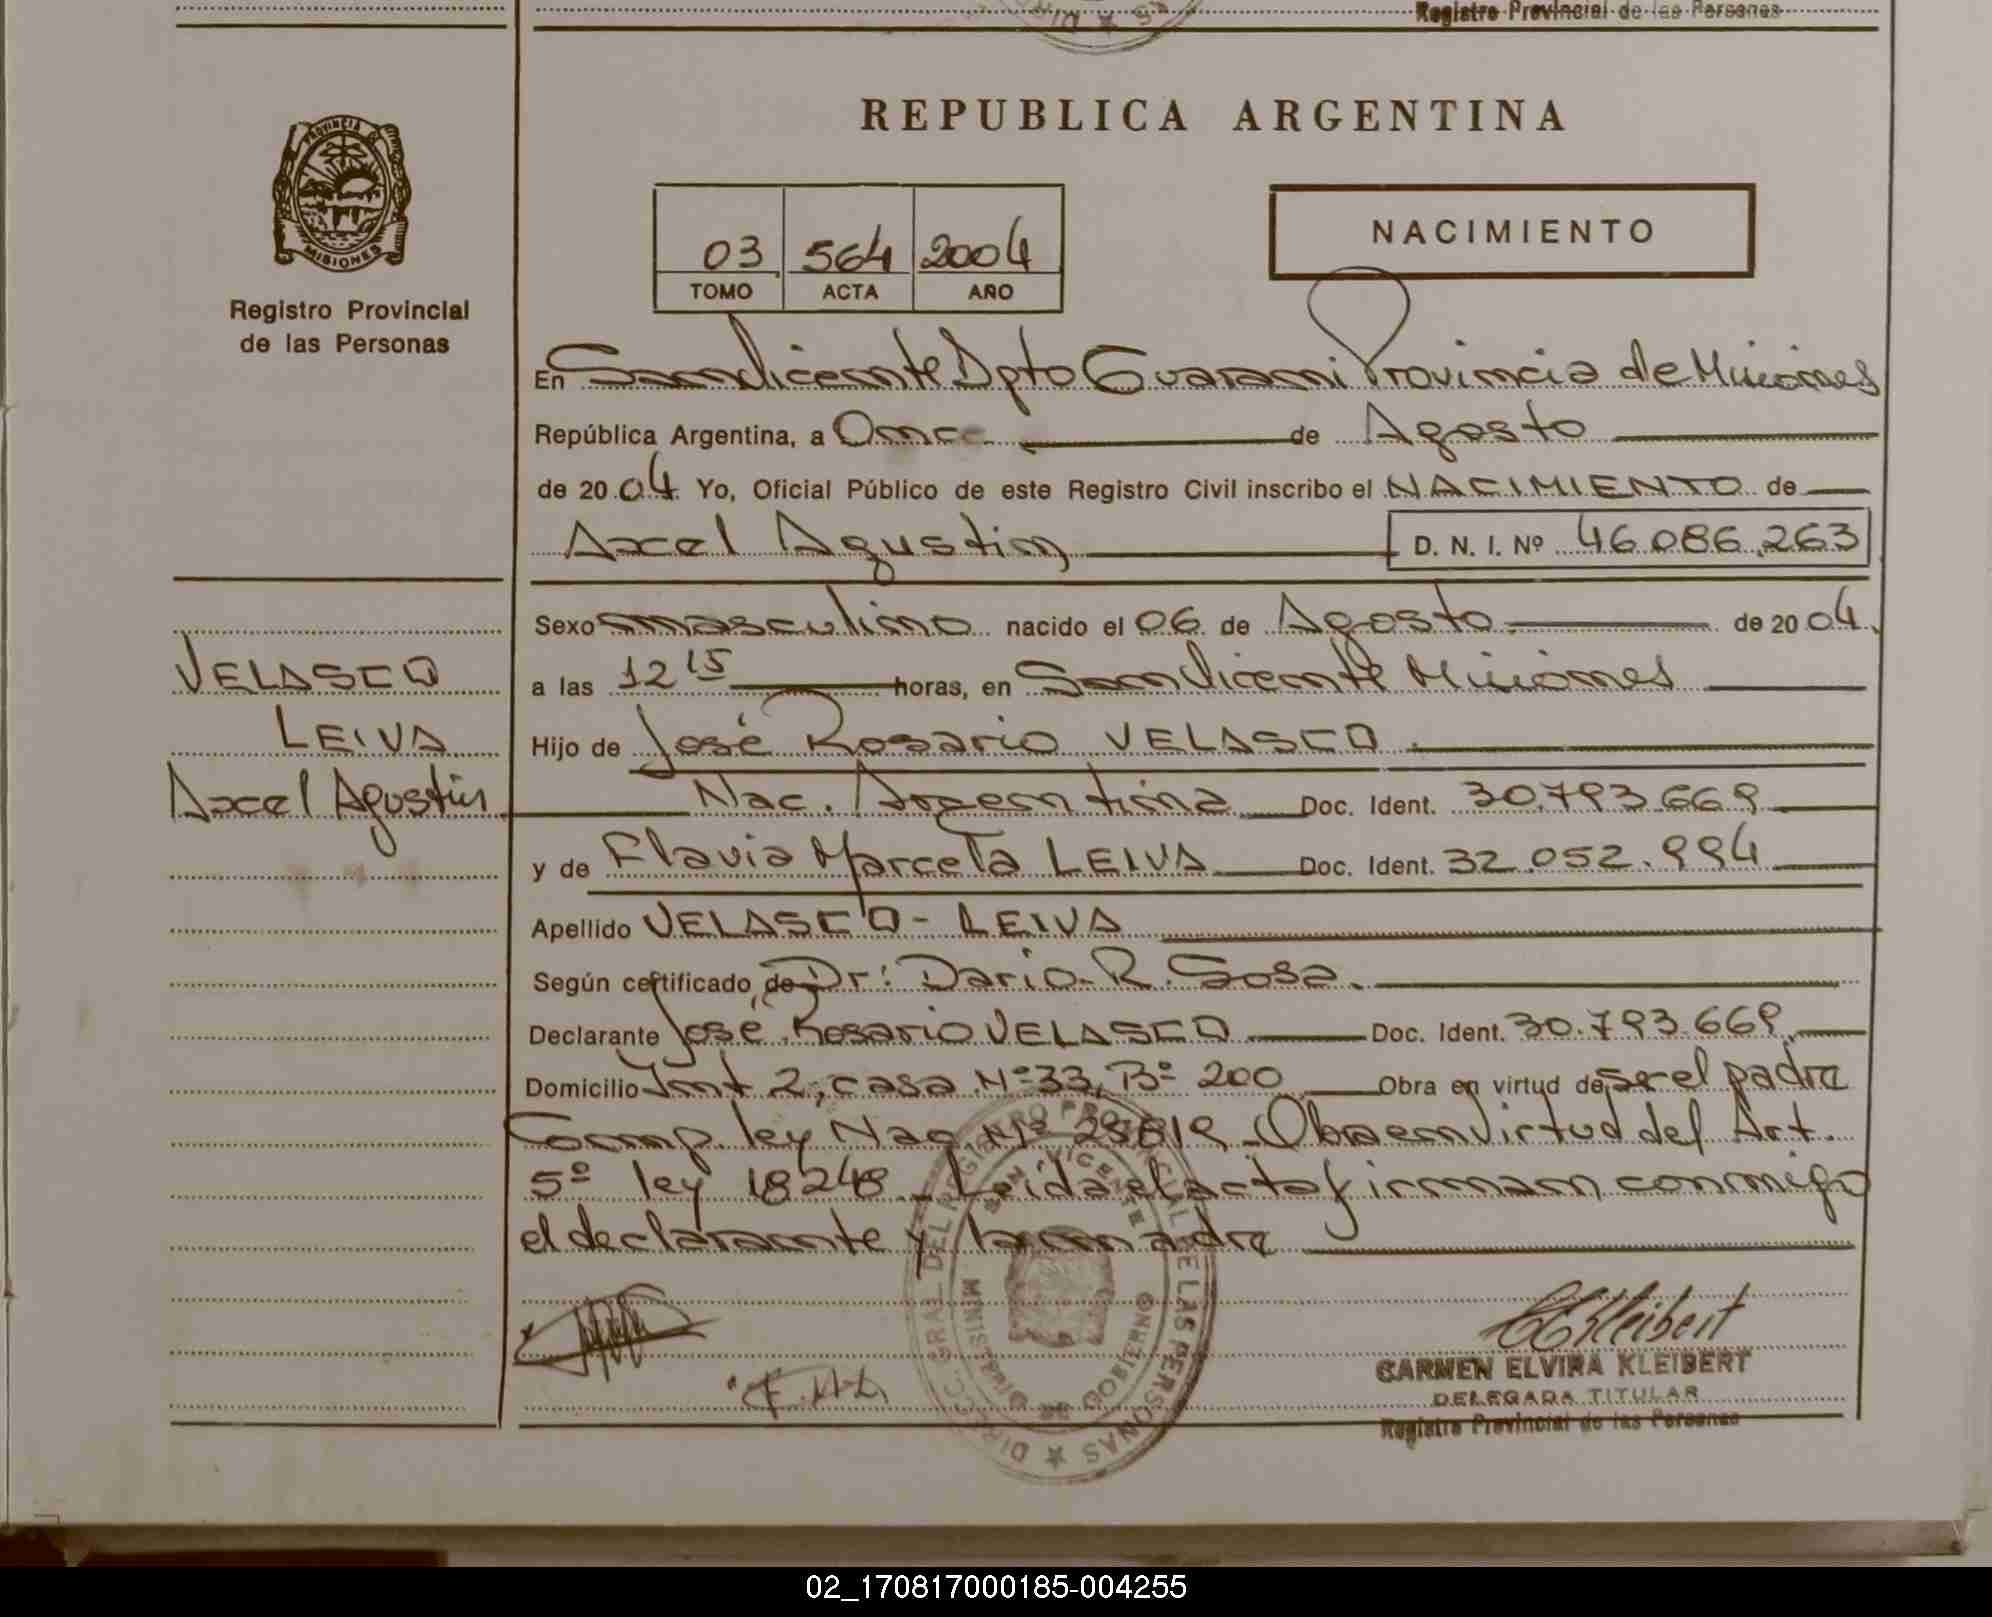 Registro Provincial de las Personas
REPUBLICA ARGENTINA
PROVINCIA DE
MISIONES
Registro Provincial
de las Personas
03 564 2004
TOMO ACTA AÑO
NACIMIENTO
En San Vicente Dpto Guarani Provincia de Misiones
República Argentina, a Once de Agosto
de 2004. Yo, Oficial Público de este Registro Civil inscribo el NACIMIENTO de
Axel Agustin D. N. I. Nº 46.086.263
Sexo masculino nacido el 06 de Agosto de 2004.
VELASCO
a las 12 15 horas, en San Vicente Misiones
LEIVA
Hijo de José Rosario VELASCO.
Axel Agustin
Nac. Argentina Doc. Ident. 30.793.669
y de Flavia Marcela LEIVA Doc. Ident. 32.052.994
Apellido VELASCO - LEIVA
Según certificado de Dr: Dario R. Sosa.
Declarante José Rosario VELASCO Doc. Ident. 30.793.669
Domicilio Int 2, casa Nº 33, Bº 200 Obra en virtud de ser el padre
Comp. ley Nac. Nº 23819 Obra en Virtud del Art.
5º ley 18248 _ Leída el acta firman conmigo
el declarante y la madre
DIRECC. GRAL. DEL REGISTRO PROVINCIAL DE LAS PERSONAS
SAN VICENTE
MINISTERIO DE GOBIERNO
CEKleibert
CARMEN ELVIRA KLEIBERT
DELEGADA TITULAR
Registro Provincial de las Personas
02_170817000185-004255